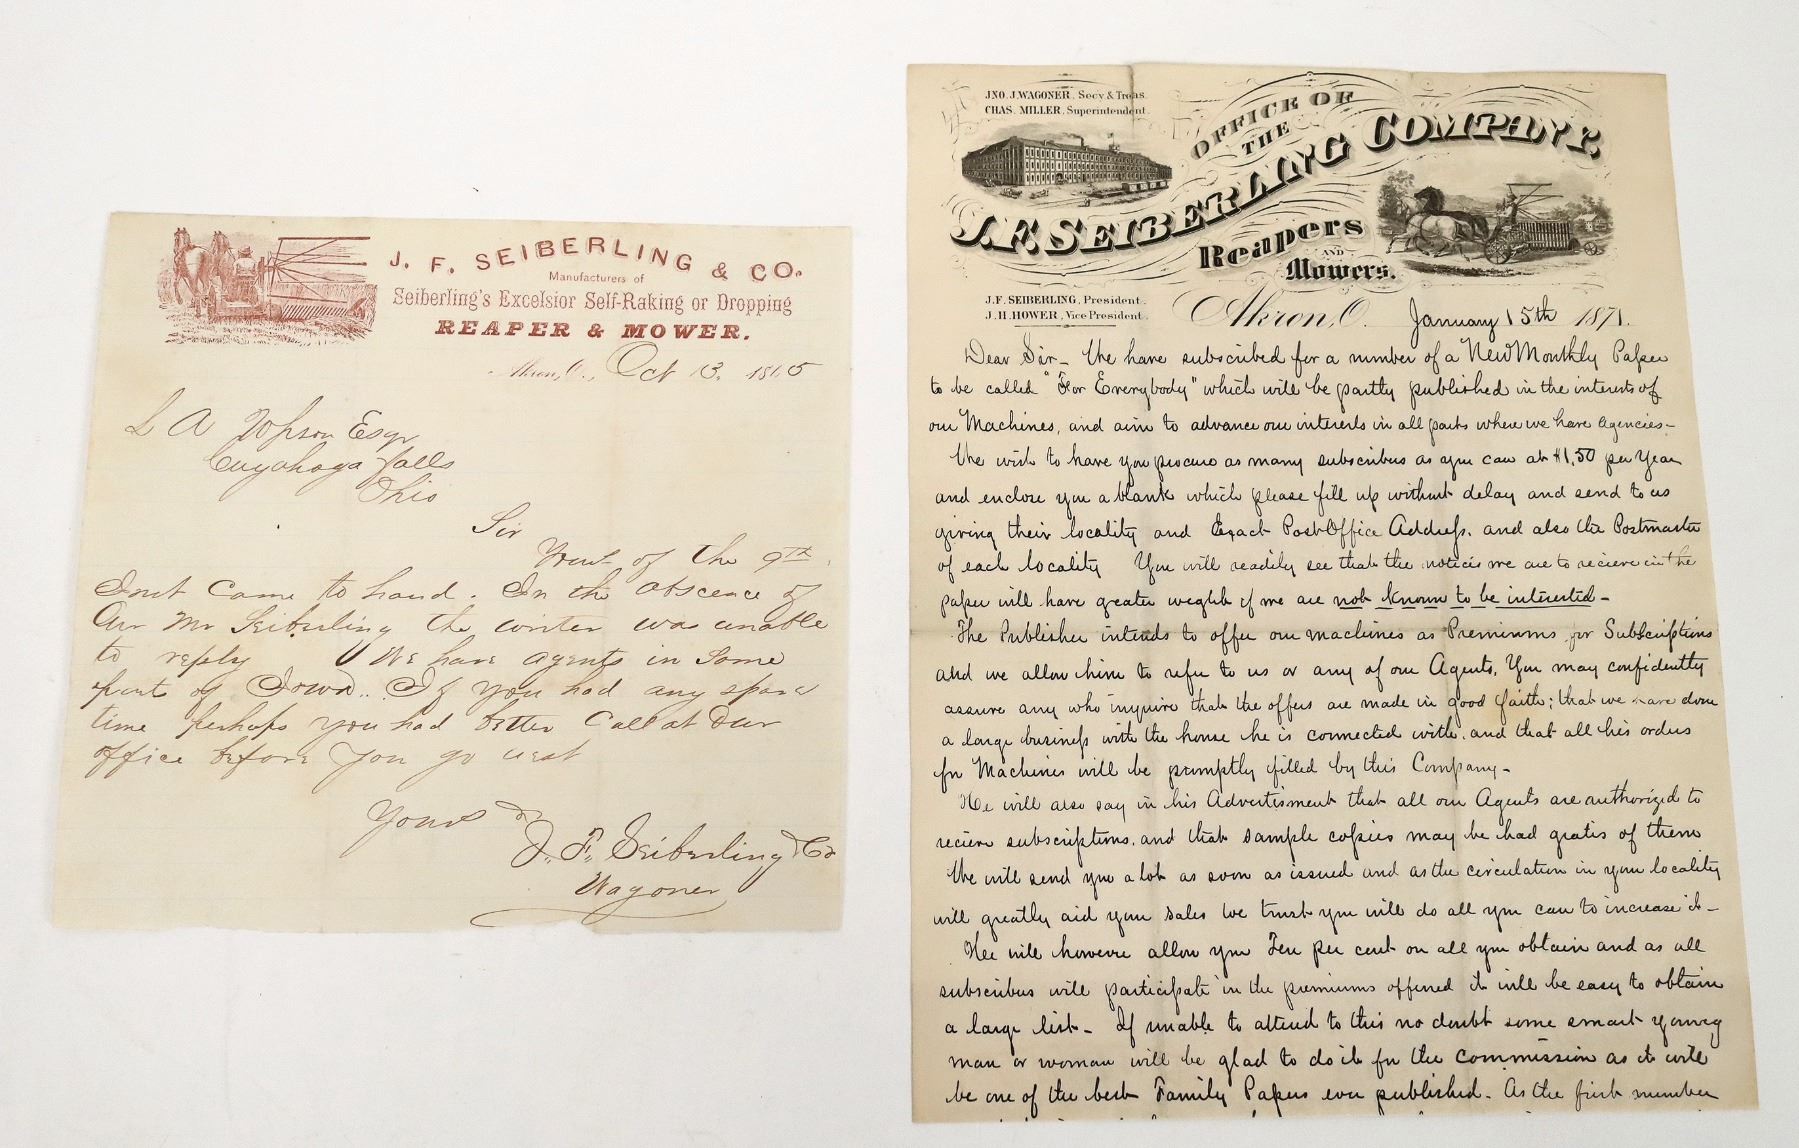 J. F. SEIBERLING & CO.
Manufacturers of
Seiberling's Excelsior Self-Raking or Dropping
REAPER & MOWER.
Akron, O., Oct 13. 1865
L A Upson Esqr
Cuyahoga Falls
Ohio
Sir
Your of the 9th
Inst came to hand. In the abscence of
Our Mr Seiberling the writer was unable
to reply We have agents in Some
part of Iowa.. If you had any spare
time perhaps you had better Call at Our
office before you go west
Yours &c
J. F. Seiberling & Co
Wagoner
JNO. J. WAGONER, Secy & Treas.
CHAS. MILLER, Superintendent.
OFFICE OF
THE
J. F. SEIBERLING COMPANY,
Reapers
AND
Mowers.
J. F. SEIBERLING, President.
J. H. HOWER, Vice President.
Akron, O. January 15th 1871.
Dear Sir - We have subscribed for a number of a New Monthly Paper
to be called "For Everybody" which will be partly published in the interests of
our Machines, and aim to advance our interests in all parts where we have agencies -
We wish to have you procure as many subscribers as you can at $1,50 per Year
and enclose you a blank which please fill up without delay and send to us
giving their locality and Exact Post Office Address. and also the Postmaster
of each locality You will readily see that the notices we are to recieve in the
paper will have greater weight if we are not known to be interested -
The Publisher intends to offer our machines as Premiums for Subscriptions
and we allow him to refer to us or any of our Agents. You may confidently
assure any who inquire that the offers are made in good faith; that we have done
a large business with the house he is connected with. and that all his orders
for Machines will be promptly filled by this Company -
He will also say in his Advertisment that all our Agents are authorized to
recieve subscriptions. and that sample copies may be had gratis of them
We will send you a lot as soon as issued and as the circulation in your locality
will greatly aid your sales we trust you will do all you can to increase it -
He will however allow you Ten per cent on all you obtain and as all
subscribers will participate in the premiums offered it will be easy to obtain
a large list - If unable to attend to this no doubt some smart young
man or woman will be glad to do it for the commission as it will
be one of the best Family Papers ever published. As the first number